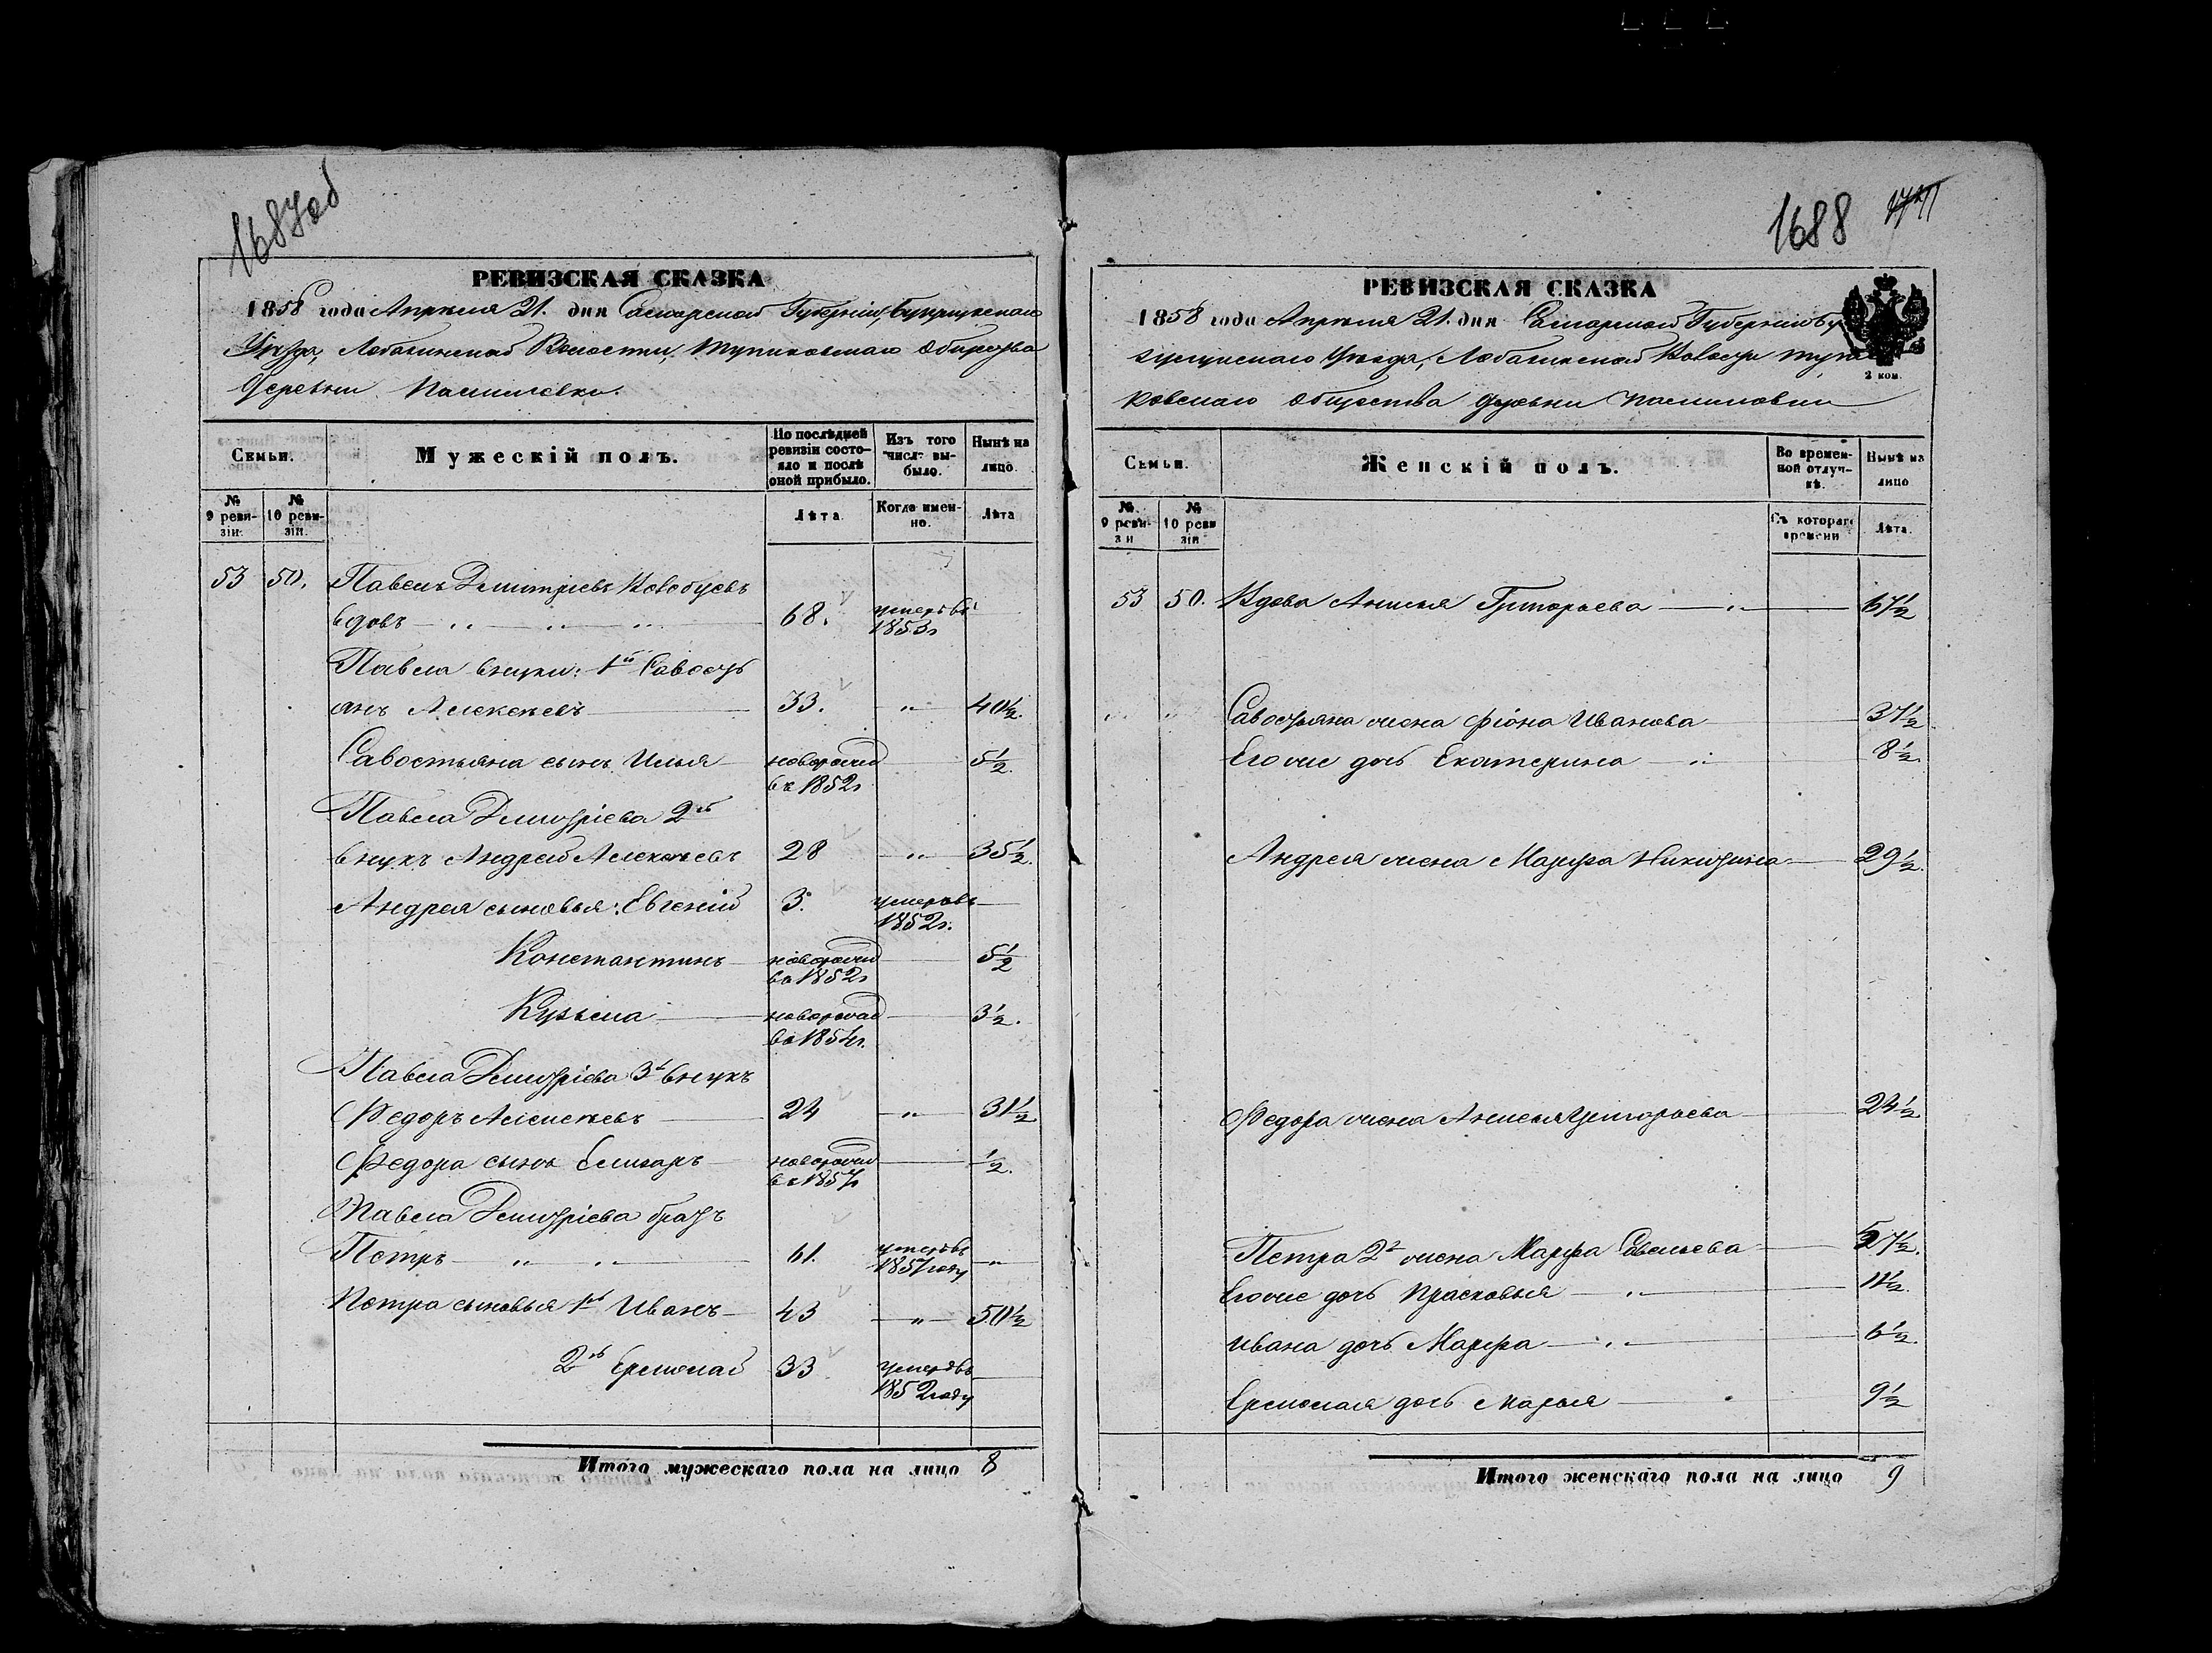 1687об
РЕВИЗСКАЯ СКАЗКА
1858 года Апреля 21. дня Самарской Губерніи, Бузулукскаго
Уезда, Лобазинской Волости, Тупиковскаго общества
Деревни
Семьи.
Мужескій полъ.
По послѣдней ревизіи состояло и послѣ оной прибыло.
Изъ того числа выбыло.
Нынѣ на лицо.
№ 9 ревизіи.
№ 10 ревизіи.
Лѣта
Когда именно.
Лѣта
53 50. Павелъ Дмитріевъ
вдовъ — „ — „ — „ — 68. умеръ въ 1853г
Павла внуки: 1й Савость
янъ Алексѣевъ 33. „ 40½.
Савостьяна сынъ Илья новорожд въ 1852г 5½.
Павла Дмитріева 2й
внукъ Андрей Алексѣевъ 28 „ 35½.
Андрея сыновья: Евгеній 3. умеръ въ 1852г.
Константинъ новорожд въ 1852г 5½
Кузьма новорожд въ 1854г. 3½.
Павла Дмитріева 3й внукъ
Федоръ Алексѣевъ 24 „ 31½
Федора сынъ Елизаръ новорожд въ 1857г ½.
Павла Дмитріева братъ
Петръ — „ — „ — 61. умеръ въ 1857 году „
Петра сыновья 1й Иванъ 43 „ 50½
2й Ермолай 33 умеръ въ 1852 году
Итого мужескаго пола на лицо 8
1688
РЕВИЗСКАЯ СКАЗКА
1858 года Апреля 21. дня Самарской Губерніи Бу
зулускаго Уезда, Лобазинской Волости Тупи
ковскаго общества деревни
2 коп.
Семьи.
Женскій полъ.
Во временной отлучкѣ.
Нынѣ на лицо
№ 9 ревизіи
№ 10 ревизіи
Съ котораго времени
Лѣта.
53 50. Вдова Анисья Григорьева — „ — 67½
„ „ Савостьяна жена Фіона Иванова 37½
Его же дочь Екатерина — „ 8½
Андрея жена Марфа Никитина 29½.
Федора жена Анисья Григорьева 24½
Петра 2я жена Марфа Савельева 57½.
Его же дочь Прасковья — „ 11½.
Ивана дочь Марфа — „ — 6½.
Ермолая дочь Марья 9½
Итого женскаго пола на лицо 9